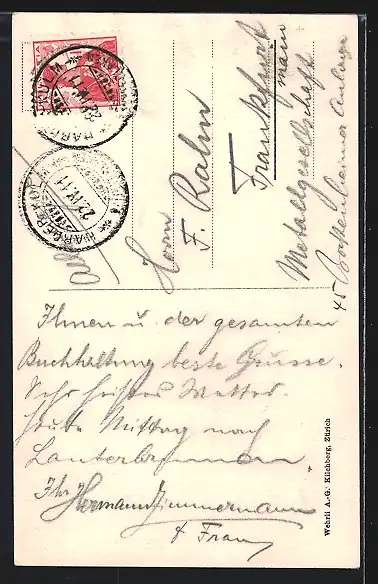 HARDERKULM
23.IV.11
HARDERKULM
23.IV.11
Herrn
F. Rahn
Frankfurt
main
Metallgesellschaft
45 Bockenheimer Anlage
Ihnen u. der gesamten
Buchhaltung beste Grüsse.
Sehr heisses Wetter.
heute Mittag nach
Lauterbrunnen
Ihr
Hermann Zimmermann
& Frau
Wehrli A.-G. Kilchberg, Zürich